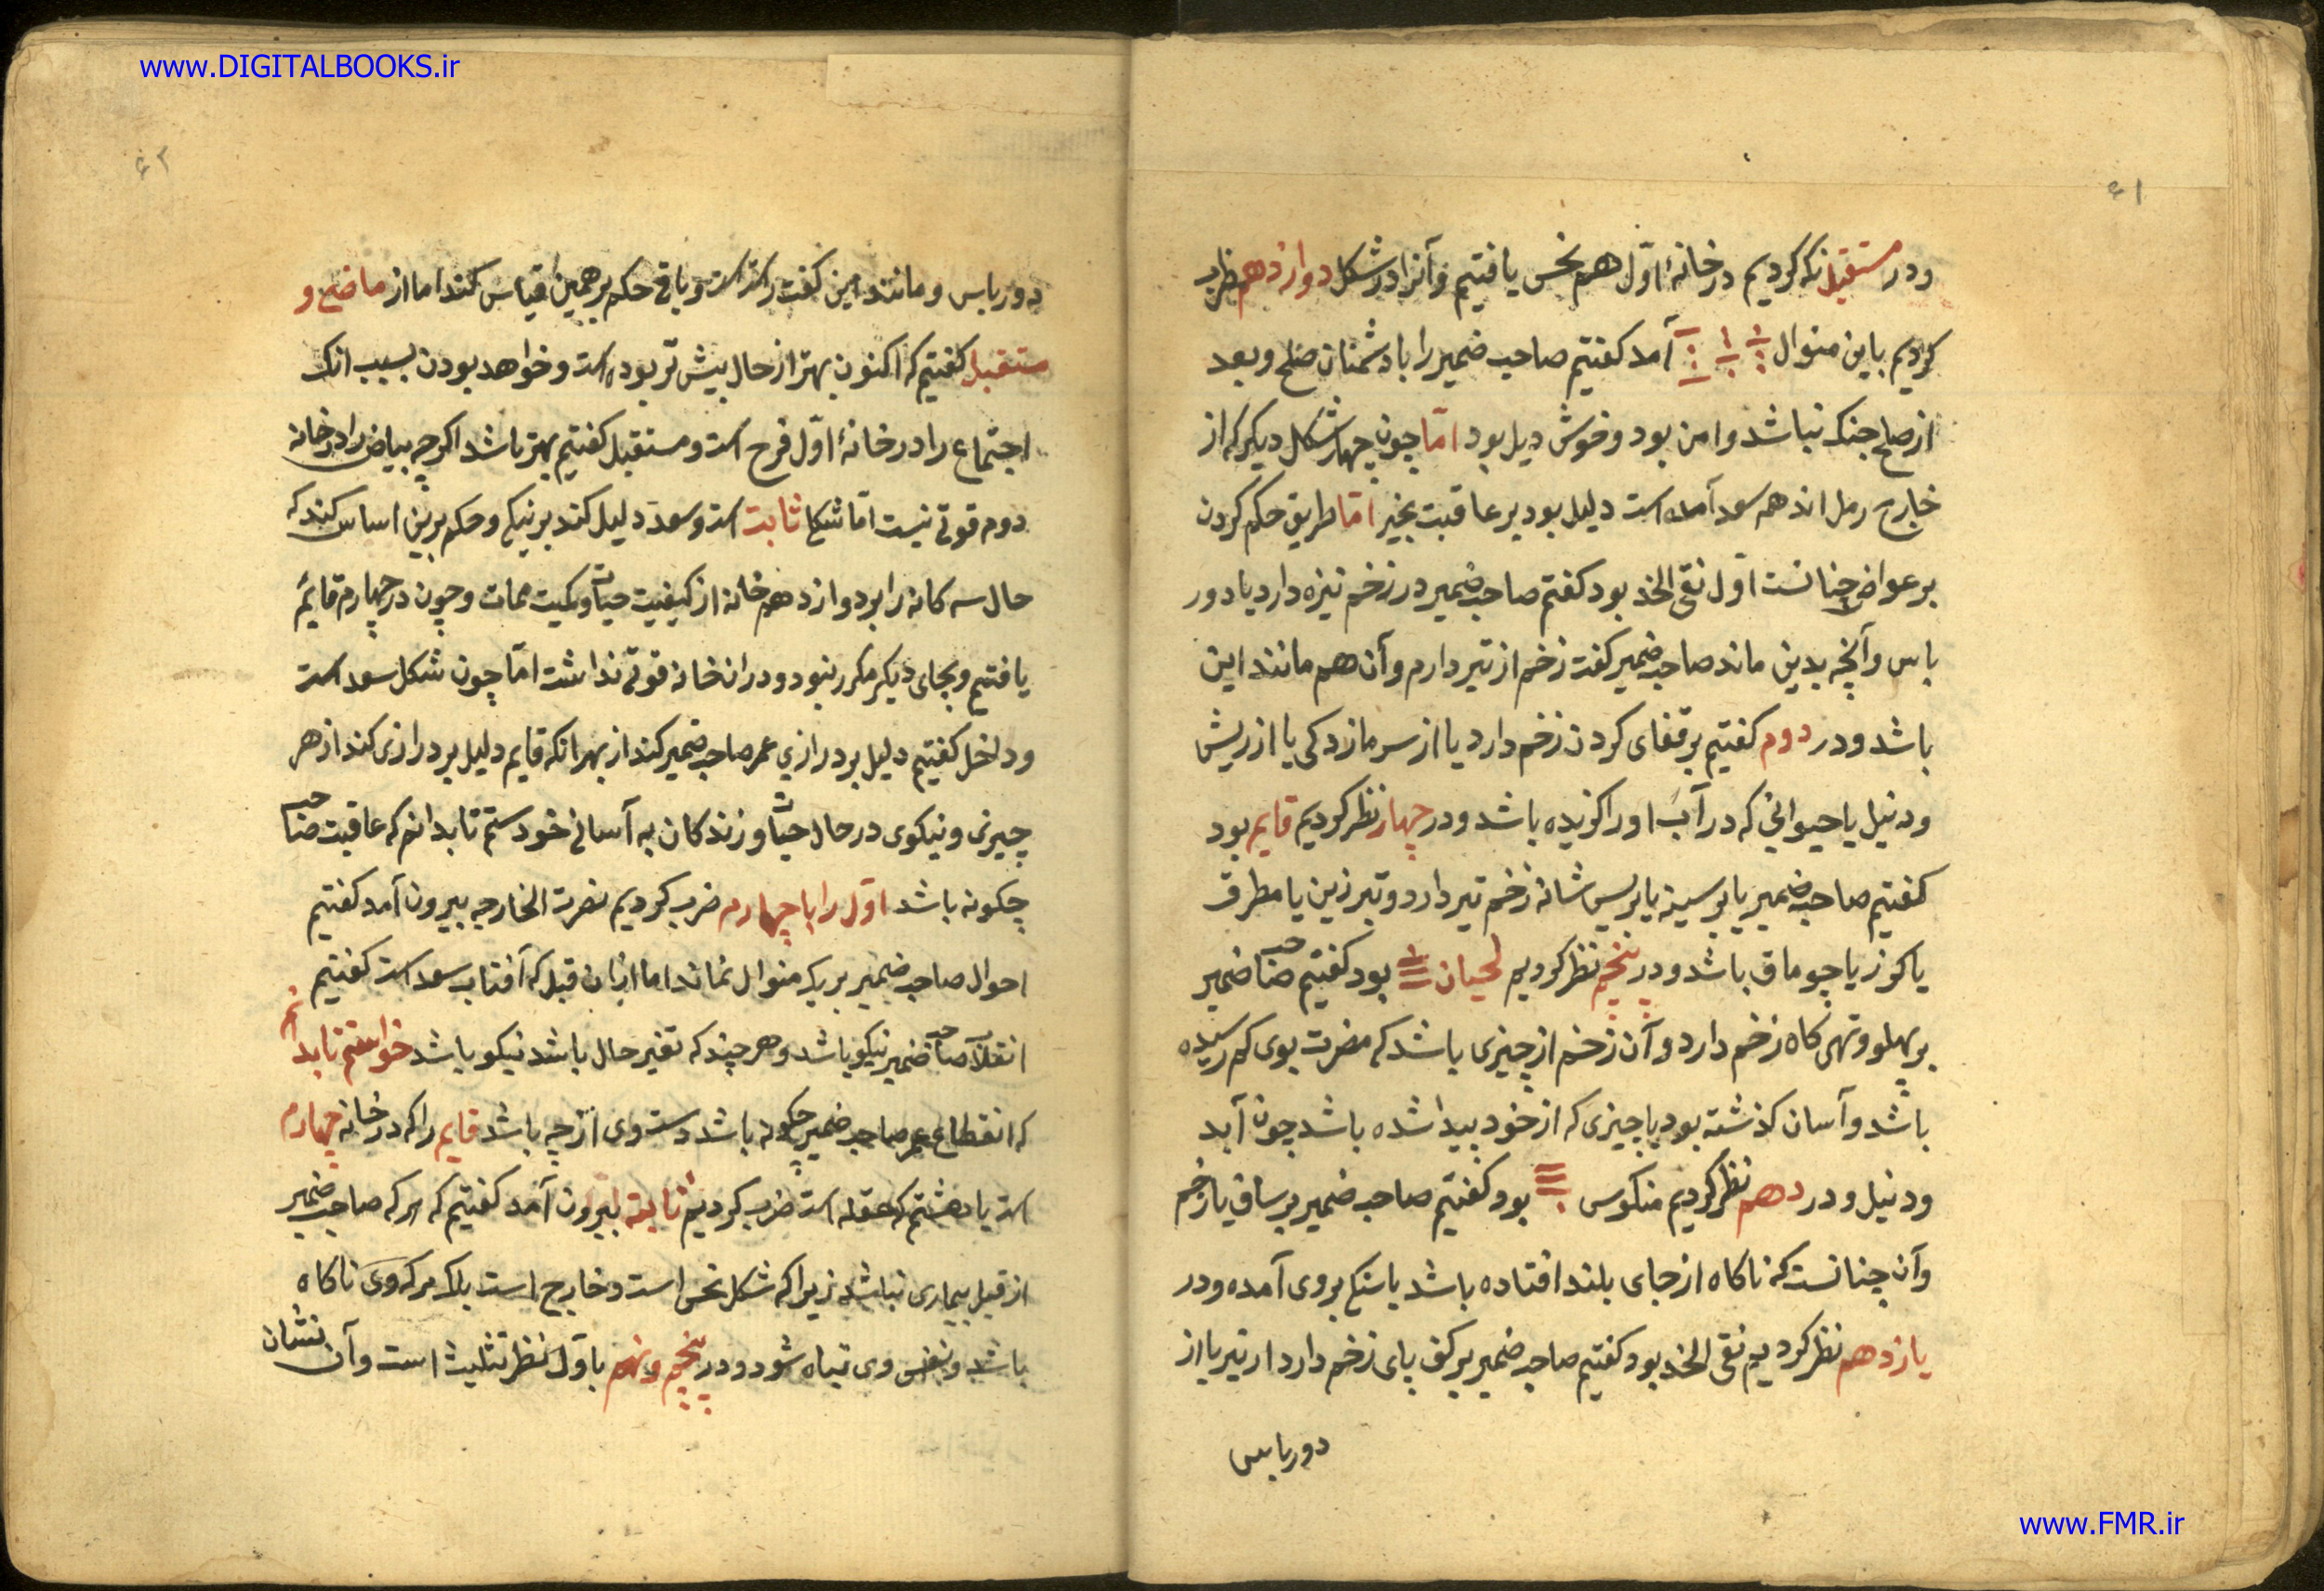 www.DIGITALBOOKS.ir
۶۱
ودر مستقبل نکه کردیم در خانهٔ اوّل هم نحس یافتیم وآنرا در شکل دوازدهم ضرب
کردیم باین منوال آمد کفتیم صاحب ضمیر را با دشمنان صلح وبعد
از صلح جنک نباشد وامن بود وخوش دیل بود امّا چون چهار شکل دیکر که از
خارج رمل اند هم سعد آمده است دلیل بود بر عاقبت بخیر امّا طریق حکم کردن
بر عواض چنانست اوّل نقی الخد بود کفتم صاحب ضمیر در زخم نیزه دارد یا دور
باس وآنچه بدین ماند صاحب ضمیر کفت زخم از تیر دارم وآن هم مانند این
باشد ودر دوم کفتیم بر قفای کردن زخم دارد یا از سر مازدکی یا از ریش
ودنیل یا حیوانی که در آب اورا کزیده باشد ودر چهار نظر کردیم قایم بود
کفتیم صاحب ضمیر یا بر سینه یا بریس شانه زخم تیر دارد وتبرزین یا مطرق
یا کوز یا چوماق باشد ودر پنجم نظر کردیم لحیان بود کفتیم صاحب ضمیر
بر پهلو وتهی کاه زخم دارد وآن زخم از چیزی باشد که مضرت بوی کم رسیده
باشد وآسان کذشته بود یا چیزی که از خود بیدا شده باشد چون آبد
ودنیل ودر دهم نظر کردیم منکوس بود کفتیم صاحب ضمیر بر ساق پا زخم
وآن چنانست که ناکاه از جای بلند افتاده باشد یا سنکی بروی آمده ودر
یازدهم نظر کردیم نقی الخد بود کفتیم صاحب ضمیر بر کف پای زخم دارد از تیر یا از
دور باس
۶۲
دور باس ومانند این کفت راست است وباقی حکم بر همین قیاس کند اما از ماضی و
مستقبل کفتیم که اکنون بهتر از حال بیش تر بوده است وخواهد بودن بسبب انک
اجتماع را در خانهٔ اوّل فرح است ومستقبل کفتیم بهتر باشد اکرچه بیاض را در خانه
دوم قوتی نیست امّا شکل ثابت است وسعد دلیل کند بر نیکی وحکم برین اساس کند که
حال سه کانه را بر دوازدهم خانه از کیفیت حیات وکمیت ممات وچون در چهارم قایم
یافتیم وبجای دیکر مکرر نبود ودران خانه قوتی نداشت امّا چون شکل سعد است
وداخل کفتیم دلیل بر درازی عمر صاحب ضمیر کند از بهر انکه قایم دلیل بر درازی کند از هر
چیزی ونیکوی در حال حیات وزندکان به آسانی خود ستم تا بدانم که عاقبت صاحب
چکونه باشد اوّل را با چهارم ضرب کردیم نصرت الخارجه بیرون آمد کفتیم
احوال صاحب ضمیر بر یک منوال نماند اما ازان قبل که آفتاب سعد است کفتیم
انقلاب صاحب ضمیر نیکو باشد وهر چند که تغیر حال باشد نیکو باشد خواستم تا بدانم
که انقطاع عمر صاحب ضمیر چکونه باشد دست وی از چه باشد قایم را که در خانه چهارم
است با هشتم که عقله است ضرب کردیم ثابته بیرون آمد کفتیم که مرکه صاحب ضمیر
از قبل بیماری نباشد زیرا که شکل نحس است وخارج است بلک مرکه وی ناکاه
باشد وبنفس وی تباه شود ودر پنجم ونهم باوّل نظر تثلیث است وآن نشان
www.FMR.ir